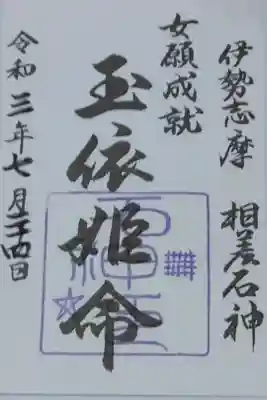 伊勢志摩 相差石神
女願成就
玉依姫命
令和三年七月二十四日